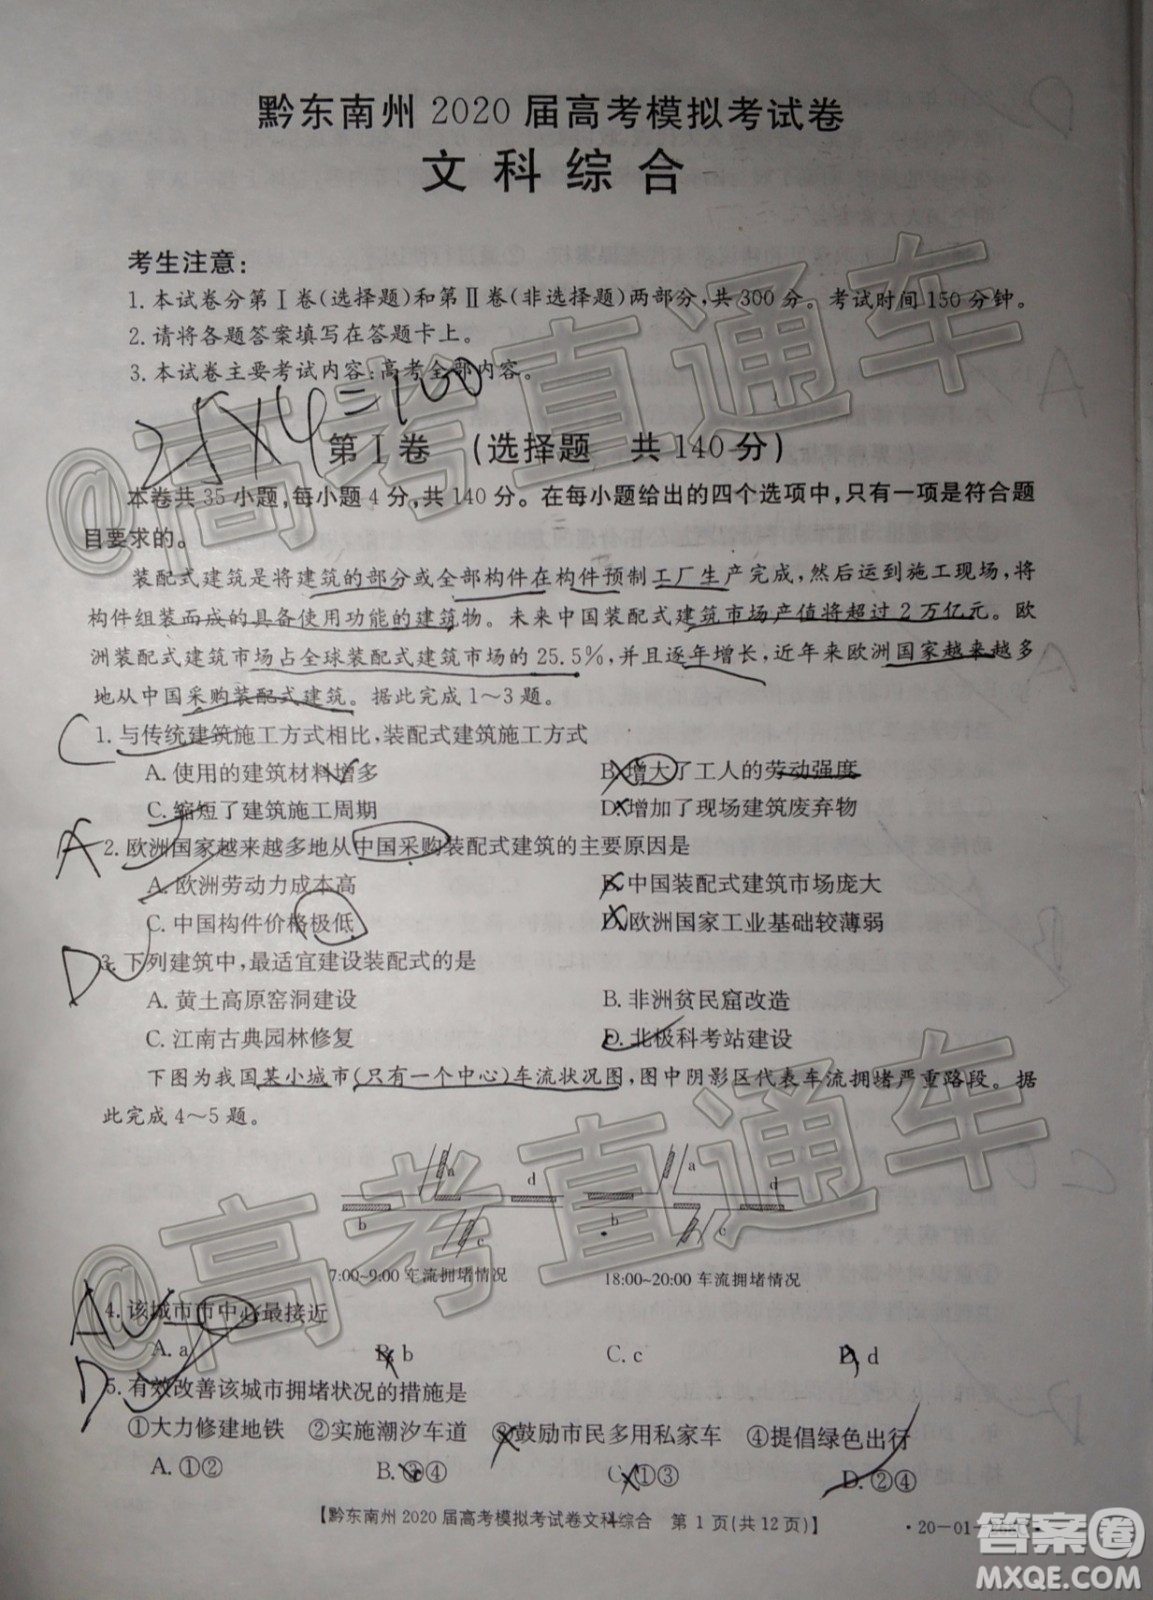 黔东南州 2020 届高考模拟考试卷
文科综合
考生注意：
1. 本试卷分第Ⅰ卷(选择题)和第Ⅱ卷(非选择题)两部分,共 300 分。考试时间 150 分钟。
2. 请将各题答案填写在答题卡上。
3. 本试卷主要考试内容:高考全部内容。
25×4=100
第Ⅰ卷 (选择题 共 140 分)
本卷共 35 小题,每小题 4 分,共 140 分。在每小题给出的四个选项中,只有一项是符合题
目要求的。
装配式建筑是将建筑的部分或全部构件在构件预制工厂生产完成,然后运到施工现场,将
构件组装而成的具备使用功能的建筑物。未来中国装配式建筑市场产值将超过 2 万亿元。欧
洲装配式建筑市场占全球装配式建筑市场的 25.5%,并且逐年增长,近年来欧洲国家越来越多
地从中国采购装配式建筑。据此完成 1～3 题。
C 1. 与传统建筑施工方式相比,装配式建筑施工方式
A. 使用的建筑材料增多 B. 增大了工人的劳动强度
C. 缩短了建筑施工周期 D. 增加了现场建筑废弃物
A 2. 欧洲国家越来越多地从中国采购装配式建筑的主要原因是
A. 欧洲劳动力成本高 B. 中国装配式建筑市场庞大
C. 中国构件价格极低 D. 欧洲国家工业基础较薄弱
D 3. 下列建筑中,最适宜建设装配式的是
A. 黄土高原窑洞建设 B. 非洲贫民窟改造
C. 江南古典园林修复 D. 北极科考站建设
下图为我国某小城市(只有一个中心)车流状况图,图中阴影区代表车流拥堵严重路段。据
此完成 4～5 题。
a d a d
b b
c c
7:00~9:00 车流拥堵情况 18:00~20:00 车流拥堵情况
A 4. 该城市市中心最接近
A. a B. b C. c D. d
D 5. 有效改善该城市拥堵状况的措施是
①大力修建地铁 ②实施潮汐车道 ③鼓励市民多用私家车 ④提倡绿色出行
A. ①② B. ③④ C. ①③ D. ②④
【黔东南州 2020 届高考模拟考试卷文科综合 第 1 页(共 12 页)】 ·20-01-
@高考直通车
@高考直通车
答案圈
MXQE.COM